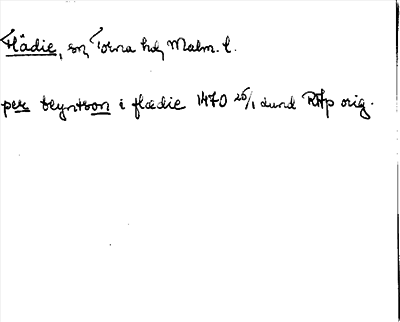 Flädie, sn Torna hd, Malm. l.
per beyntson i flædie 1470 26/1 Lund RAp orig.